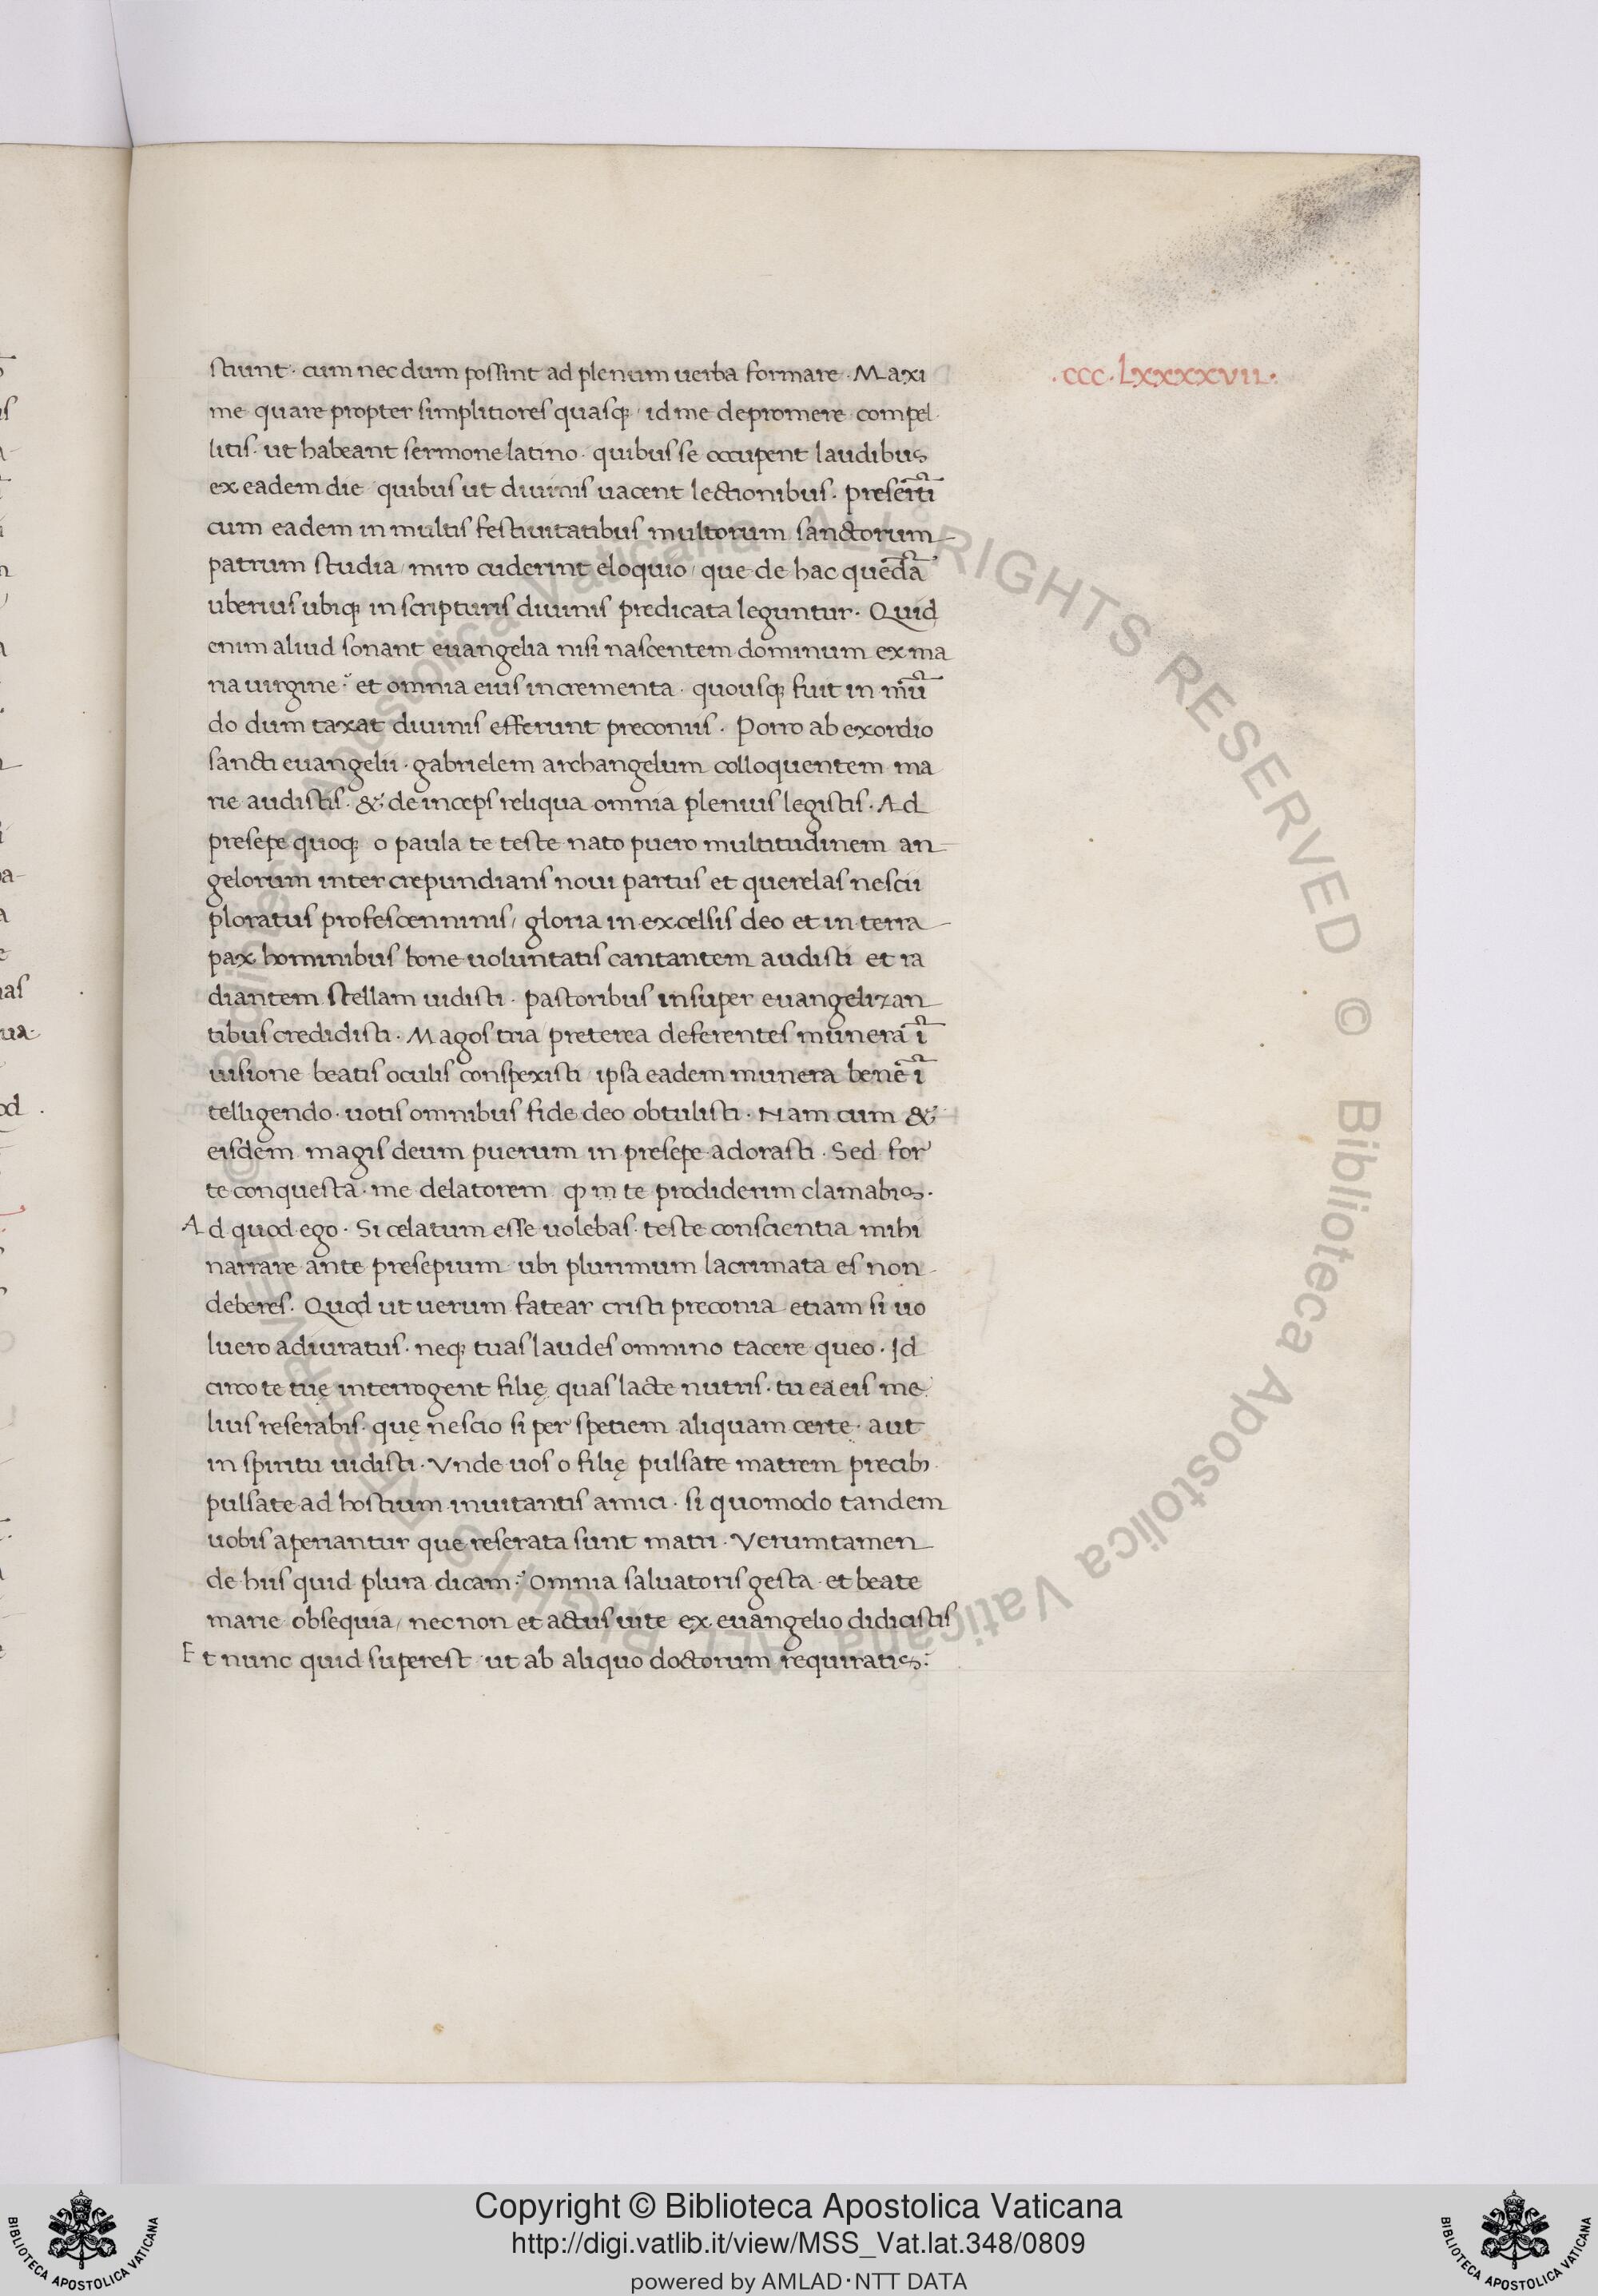 .CCC.LXXXXVII.
sciunt. cum nec dum possint ad plenum uerba formare. Maxi
me quare propter simplitiores quasq; id me depromere compel
litis. ut habeant sermone latino. quibus se occupent laudibus
ex eadem die quibus ut diuinis uacent lectionibus. presertī
cum eadem in multis festiuitatibus multorum sanctorum
patrum studia/ miro cuderint eloquio/ que de hac quedā
uberius ubiq; in scripturis diuinis predicata leguntur. Quid
enim aliud sonant euangelia nisi nascentem dominum ex ma
ria uirgine? et omnia eius incrementa. quousq; fuit in mū
do dum taxat diuinis efferunt preconiis. Porro ab exordio
sancti euangelii. gabrielem archangelum colloquentem ma
rie audistis. & deinceps reliqua omnia plenius legistis. Ad
presepe quoq; o paula te teste nato puero multitudinem an
gelorum inter crepundians noui partus et querelas nescii
ploratus profescenninis/ gloria in excelsis deo et in terra
pax hominibus bone uoluntatis cantantem audisti et ra
diantem stellam uidisti. pastoribus insuper euangelizan
tibus credidisti. Magos tria preterea deferentes munera ī
uisione beatis oculis conspexisti/ ipsa eadem munera bene ī
telligendo. uotis omnibus fide deo obtulisti. Nam cum &
eisdem magis deum puerum in presepe adorasti. Sed for
te conquesta. me delatorem in te prodiderim clamabis.
Ad quod ego. Si celatum esse uolebas. teste conscientia mihi
narrare ante presepium ubi plurimum lacrimata es non
deberes. Quod ut uerum fatear cristi preconia etiam si uo
luero adiuratus. neq; tuas laudes omnino tacere queo. Id
circo te tuę interrogent filię quas lacte nutris. tu ea eis me
lius reserabis. quę nescio si per spetiem aliquam certe. aut
in spiritu uidisti. Vnde uos o filię pulsate matrem precib;
pulsate ad hostium inuitantis amici. si quomodo tandem
uobis aperiantur que reserata sunt matri. Verumtamen
de hiis quid plura dicam? Omnia saluatoris gesta et beate
marie obsequia/ necnon et actus uite ex euangelio didicistis
Et nunc quid superest ut ab aliquo doctorum requiratis?
© Biblioteca Apostolica Vaticana ALL RIGHTS RESERVED
© Biblioteca Apostolica Vaticana ALL RIGHTS RESERVED
Copyright © Biblioteca Apostolica Vaticana
http://digi.vatlib.it/view/MSS_Vat.lat.348/0809
powered by AMLAD·NTT DATA
BIBLIOTECA APOSTOLICA VATICANA
BIBLIOTECA APOSTOLICA VATICANA